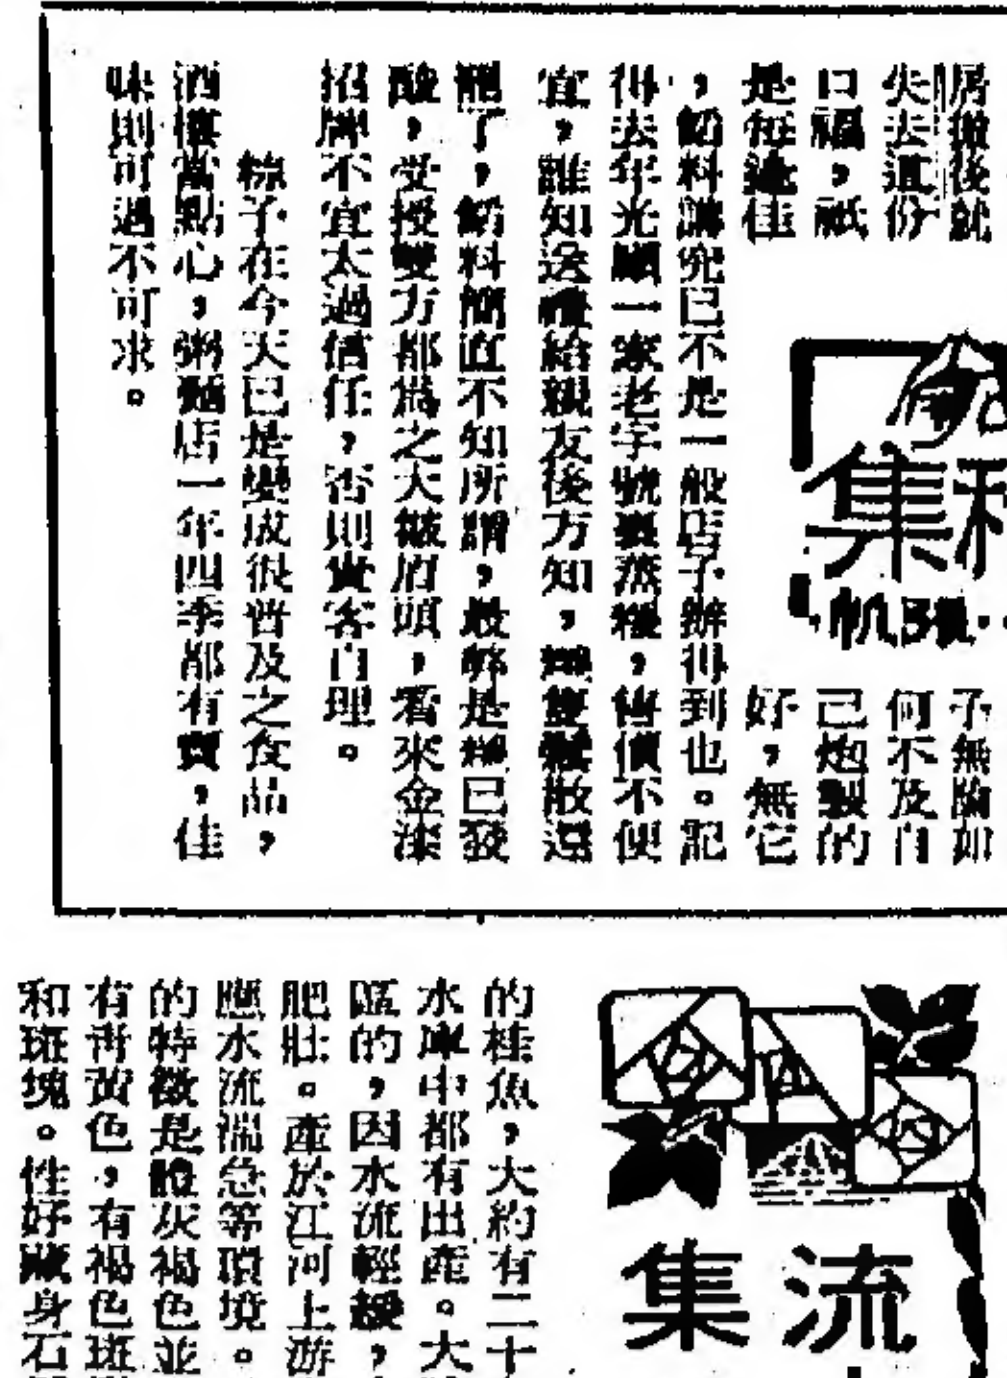 房撤後就
失去這份
口福，祇
是每逢佳
子無險如
何不及自
己炮製的
好，無它
，餡料講究已不是一般店子辦得到也。記
得去年光顧一家老字號裹蒸糭，售價不便
宜，誰知送禮給親友後方知，糭蓑鬆散還
罷了，餡料簡直不知所謂，最弊是糭已發
酸，受授雙方都為之大皺眉頭，看來金漆
招牌不宜太過信任，否則貴客自理。
粽子在今天已是變成很普及之食品，
酒樓當點心，粥麵店一年四季都有賣，佳
味則可遇不可求。
集
流
集
的桂魚，大約有二十
水庫中都有出產。大
區的，因水流輕緩，
肥壯。產於江河上游
應水流湍急等環境。
的特徵是體灰褐色並
有青黃色，有褐色斑
和斑塊。性好藏身石